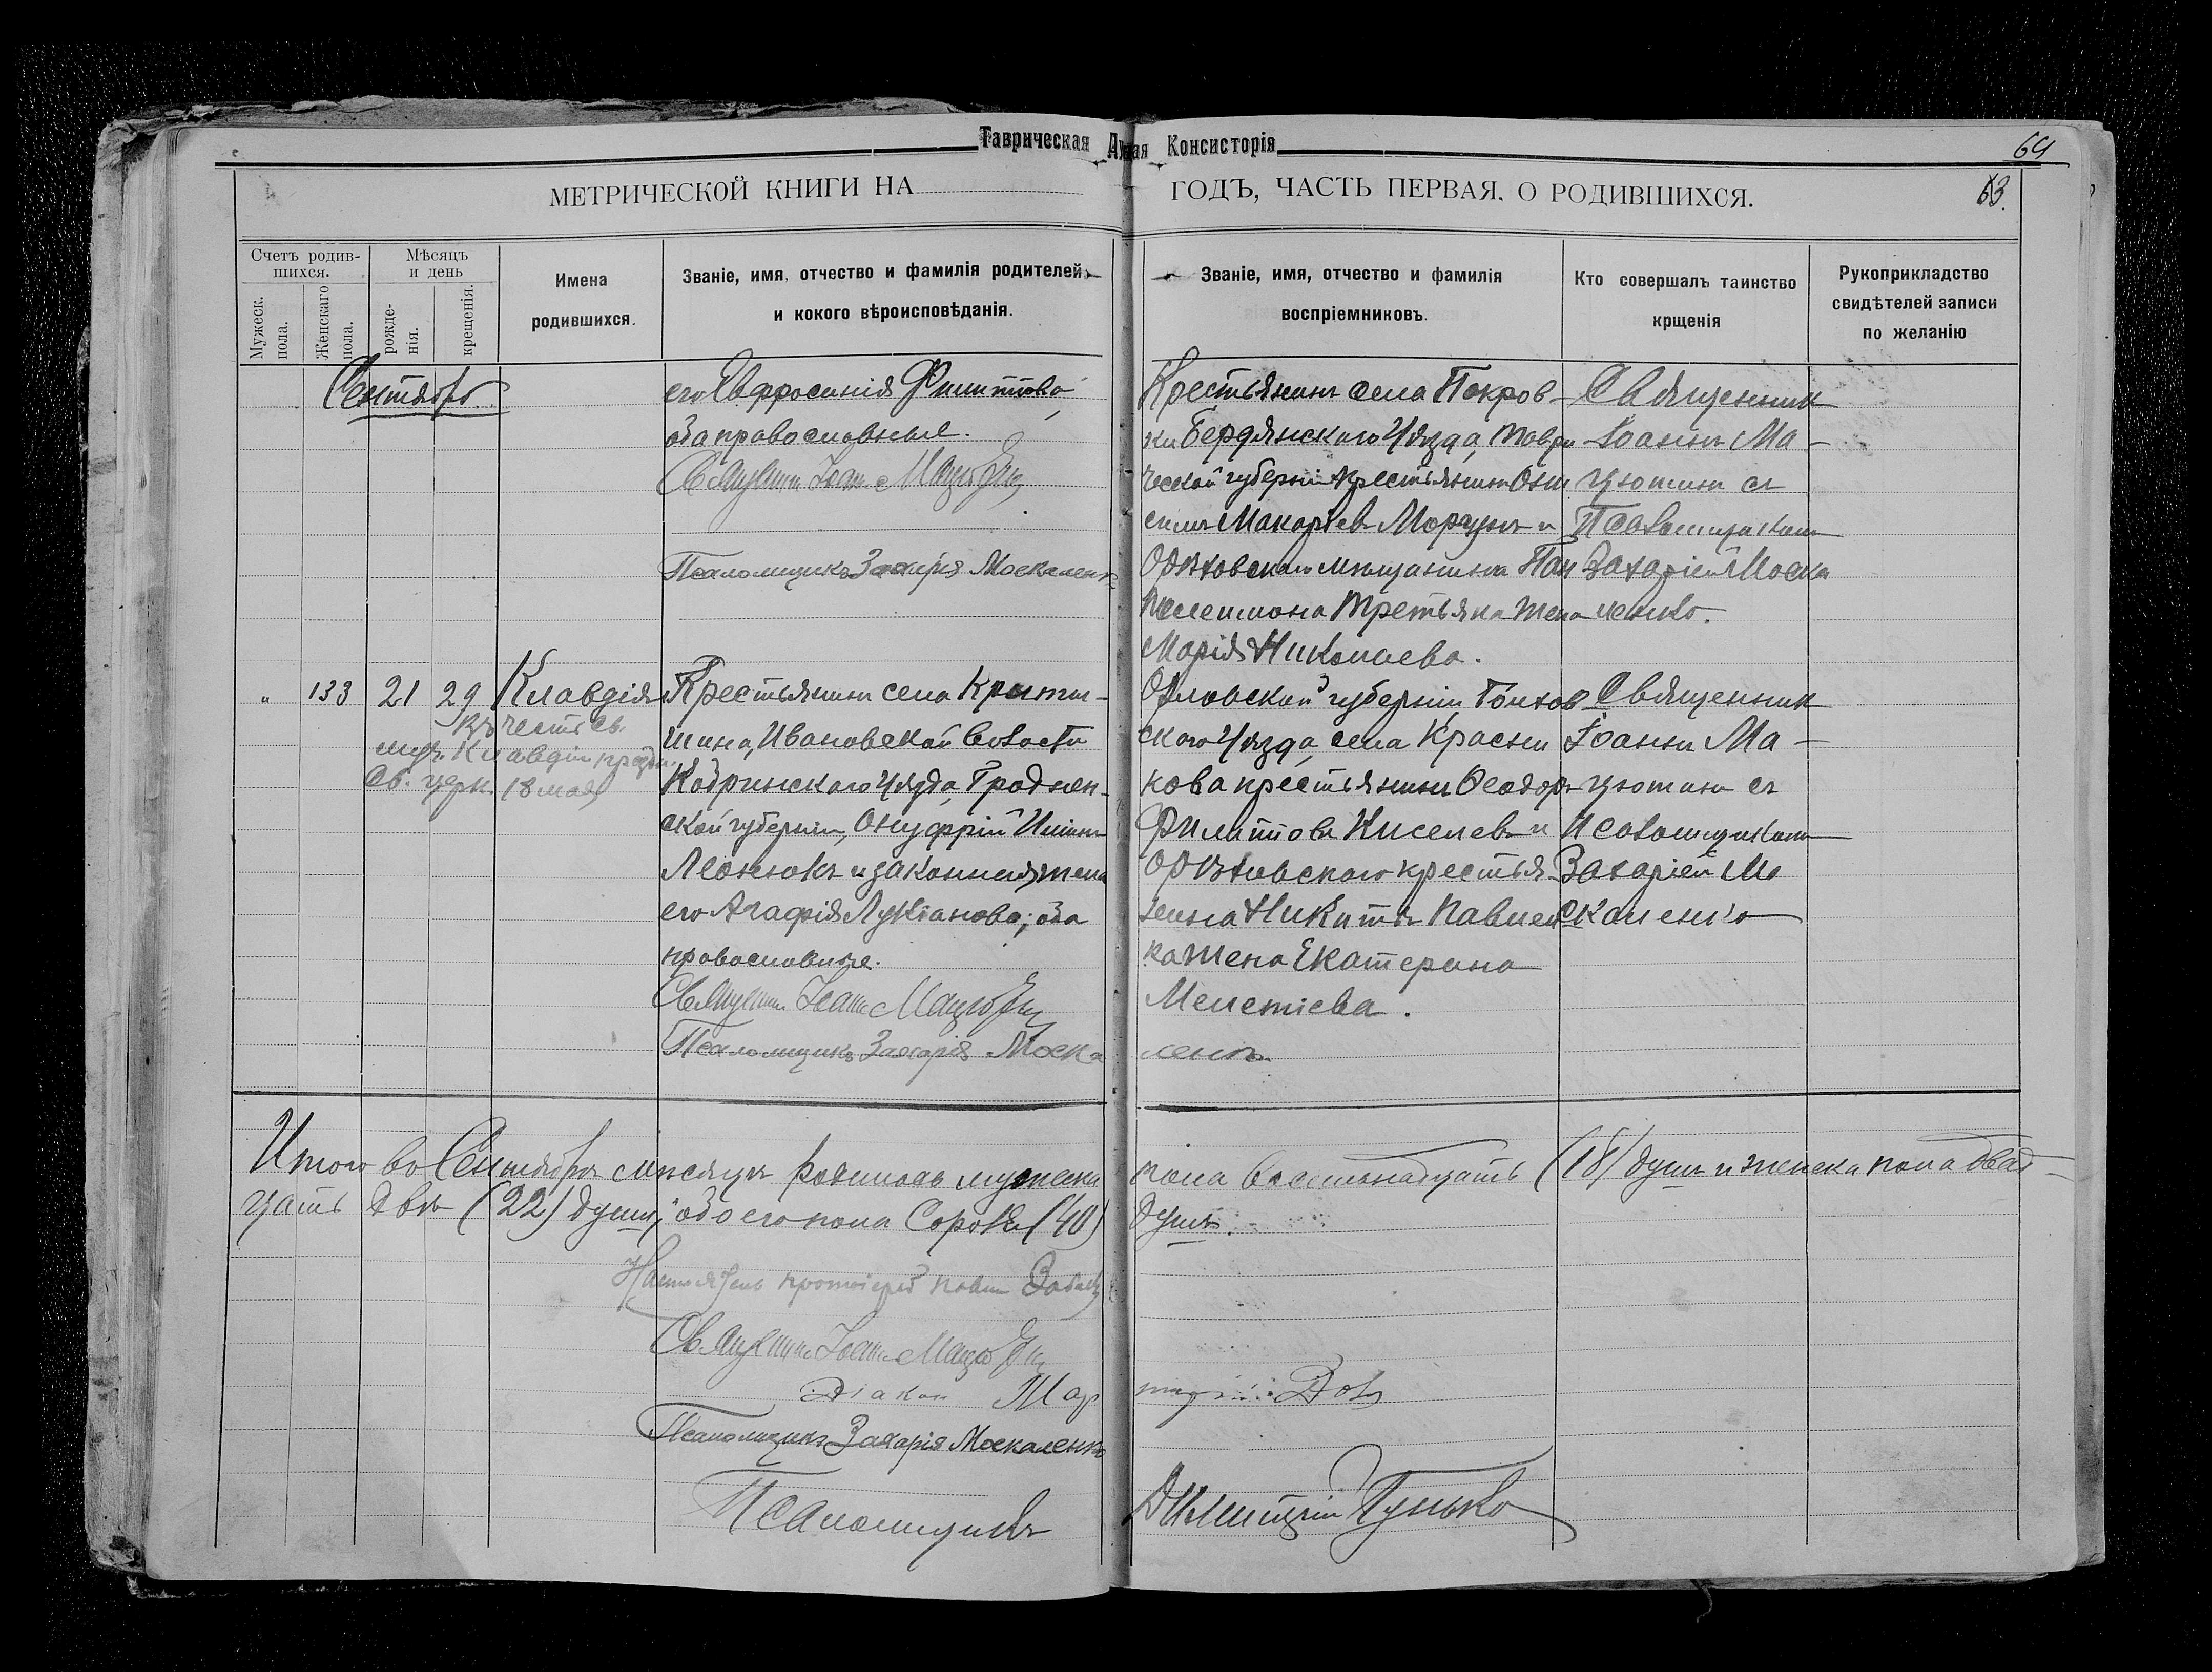 Таврическая Д ная Консисторія
64
МЕТРИЧЕСКОЙ КНИГИ НА ГОДЪ, ЧАСТЬ ПЕРВАЯ, О РОДИВШИХСЯ.
63.
Счетъ родив-
шихся.
Мужеск.
пола.
Женскаго
пола.
Мѣсяцъ
и день
рожде-
нія.
крещенія.
Имена
родившихся.
Званіе, имя, отчество и фамилія родителей,
и какого вѣроисповѣданія.
Званіе, имя, отчество и фамилія
воспріемниковъ.
Кто совершалъ таинство
крщенія
Рукоприкладство
свидѣтелей записи
по желанію
Сентябрь
его Евфросинія Филиппова,
оба православные.
Священникъ Іоаннъ
Псаломщикъ Захарія Москаленко
Крестьянинъ села Покров-
ки Бердянскаго Уѣзда, Таври
ческой губерніи крестьянинъ Они
симъ Макаріевъ Моргунъ и
Орѣховскаго мѣщанина Пан
телеимона Третьяка жена
Марія Николаева.
Священникъ
Іоаннъ Ма-
цютинъ съ
Псаломщикомъ
Захаріей Моска
ленко.
" 133 21 29 Клавдія
Въ честь Св.
муч. Клавдіи праздн.
Св. церк. 18 мая
Крестьянинъ села Криты-
шина, Ивановской Волости
Кобринскаго Уѣзда, Гроднен-
ской губерніи, Онуфрій Иліинъ
Леонюкъ и законная жена
его Агафія Лукіанова; оба
православные.
Священникъ Іоаннъ
Псаломщикъ Захарія Моска
ленко
Орловской губерніи, Болхов
скаго Уѣзда, села Красни
кова крестьянинъ Ѳеодоръ
Филипповъ Киселевъ и
Орѣховскаго крестья-
нина Никиты Павлен
ка жена Екатерина
Мелетіева.
Священникъ
Іоаннъ Ма-
цютинъ съ
Псаломщикомъ
Захаріей Мо
скаленко
Итого во Сентябрѣ мѣсяцѣ родилось мужеска пола восемнадцать (18) душъ и женска пола двад-
цать двѣ (22) души, обоего пола Сорокъ (40) душъ.
Настоятель протоіерей
Священникъ Іоаннъ
Діаконъ
Псаломщикъ Захарія Москаленко
Псаломщикъ Димитрій Гунько